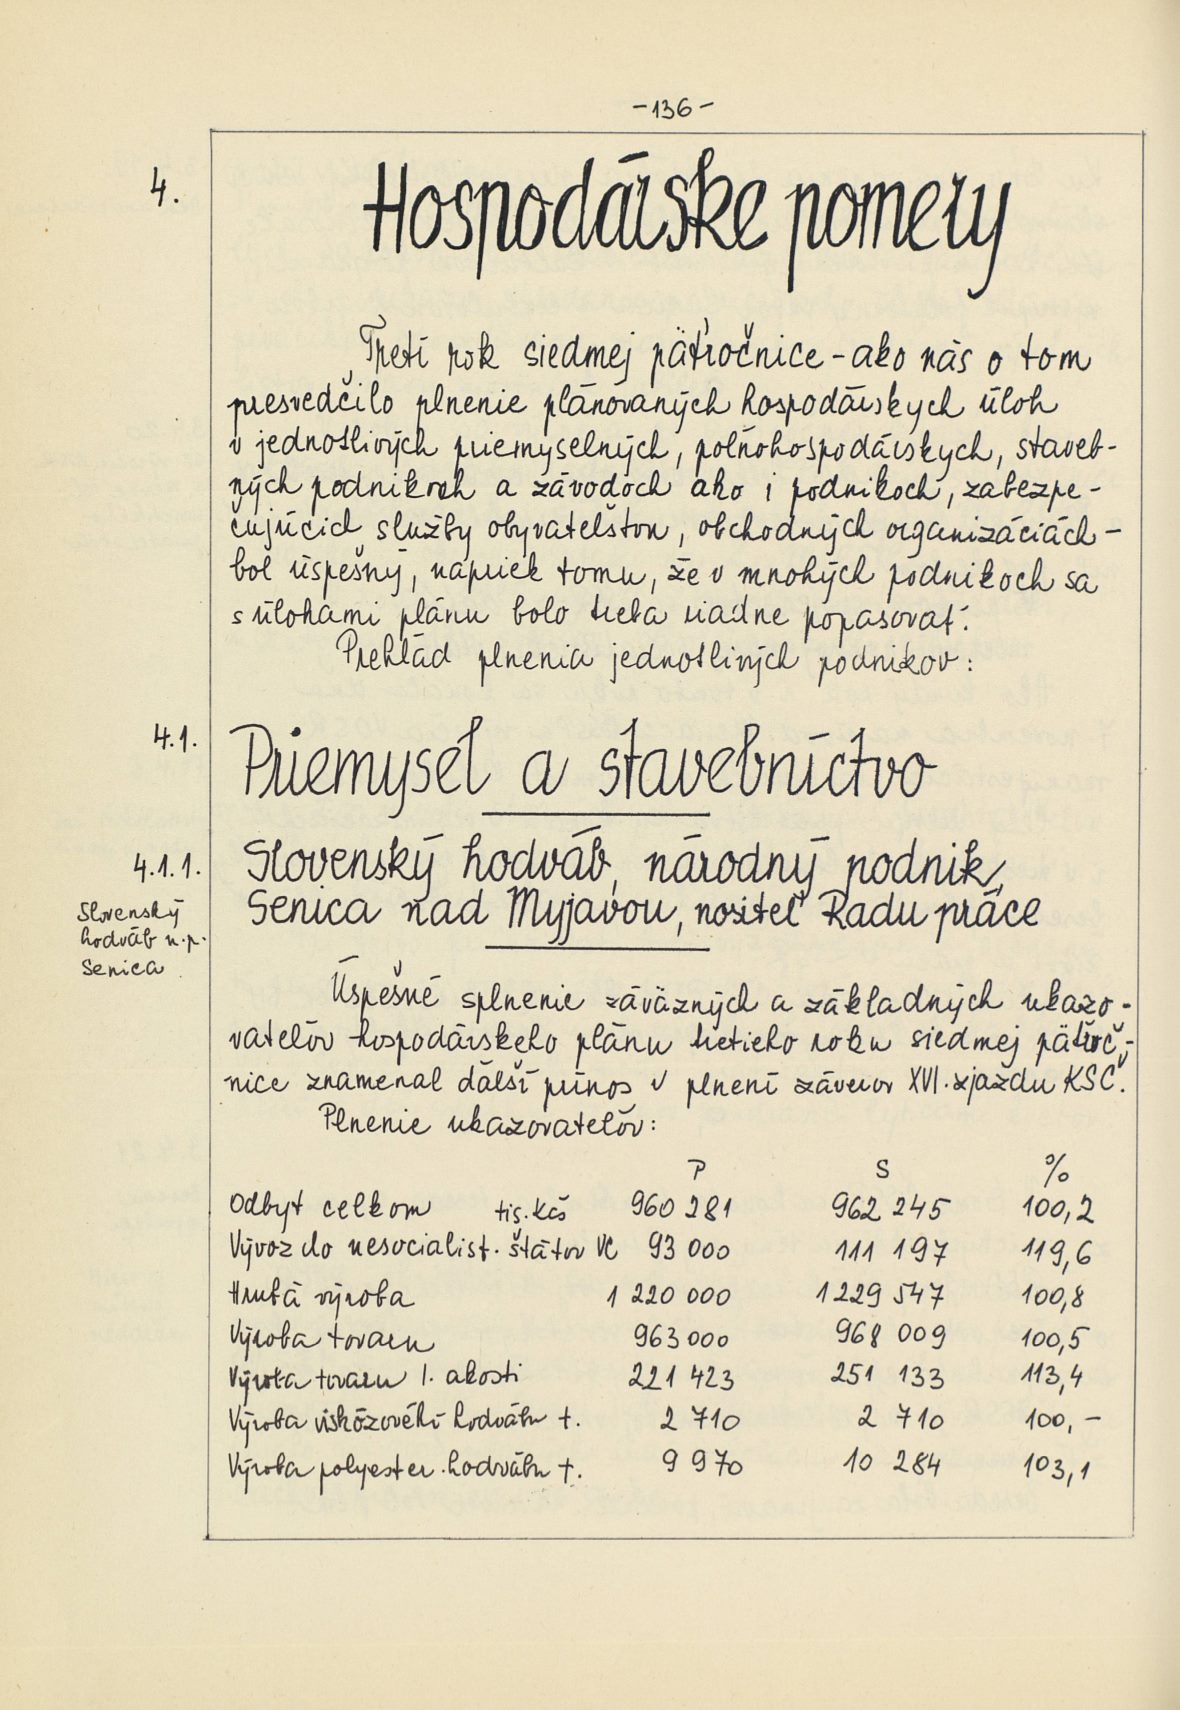 -136-
4.
Hospodárske pomery
Tretí rok siedmej päťročnice - ako nás o tom
presvedčilo plnenie plánovaných hospodárskych úloh
v jednotlivých priemyselných, poľnohospodárskych, staveb-
ných podnikoch a závodoch ako i podnikoch, zabezpe-
čujúcich služby obyvateľstvu, obchodných organizáciách -
bol úspešný, napriek tomu, že v mnohých podnikoch sa
s úlohami plánu bolo treba riadne popasovať.
Prehľad plnenia jednotlivých podnikov:
4.1.
Priemysel a stavebníctvo
4.1.1.
Slovenský hodváb, národný podnik,
Senica nad Myjavou, nositeľ Radu práce
Slovenský
hodváb n.p.
Senica
Úspešné splnenie záväzných a základných ukazo-
vateľov hospodárskeho plánu tretieho roku siedmej päťroč-
nice znamenal ďalší prínos v plnení záverov XVI. zjazdu KSČ.
Plnenie ukazovateľov:
P S %
Odbyt celkom tis. Kčs 960 281 962 245 100,2
Vývoz do nesocialist. štátov VC 93 000 111 197 119,6
Hrubá výroba 1 220 000 1 229 547 100,8
Výroba tovaru 963 000 968 009 100,5
Výroba tovaru I. akosti 221 423 251 133 113,4
Výroba viskózového hodvábu t. 2 710 2 710 100,-
Výroba polyester. hodvábu t. 9 970 10 284 103,1